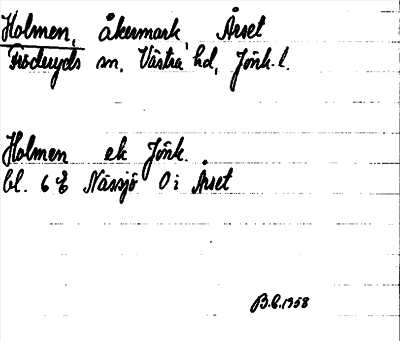 Holmen, åkermark, Årset
Fröderyds sn, Västra hd, Jönk. l.
Holmen ek Jönk.
bl. 6 Nässjö O i Årset
B.E. 1958